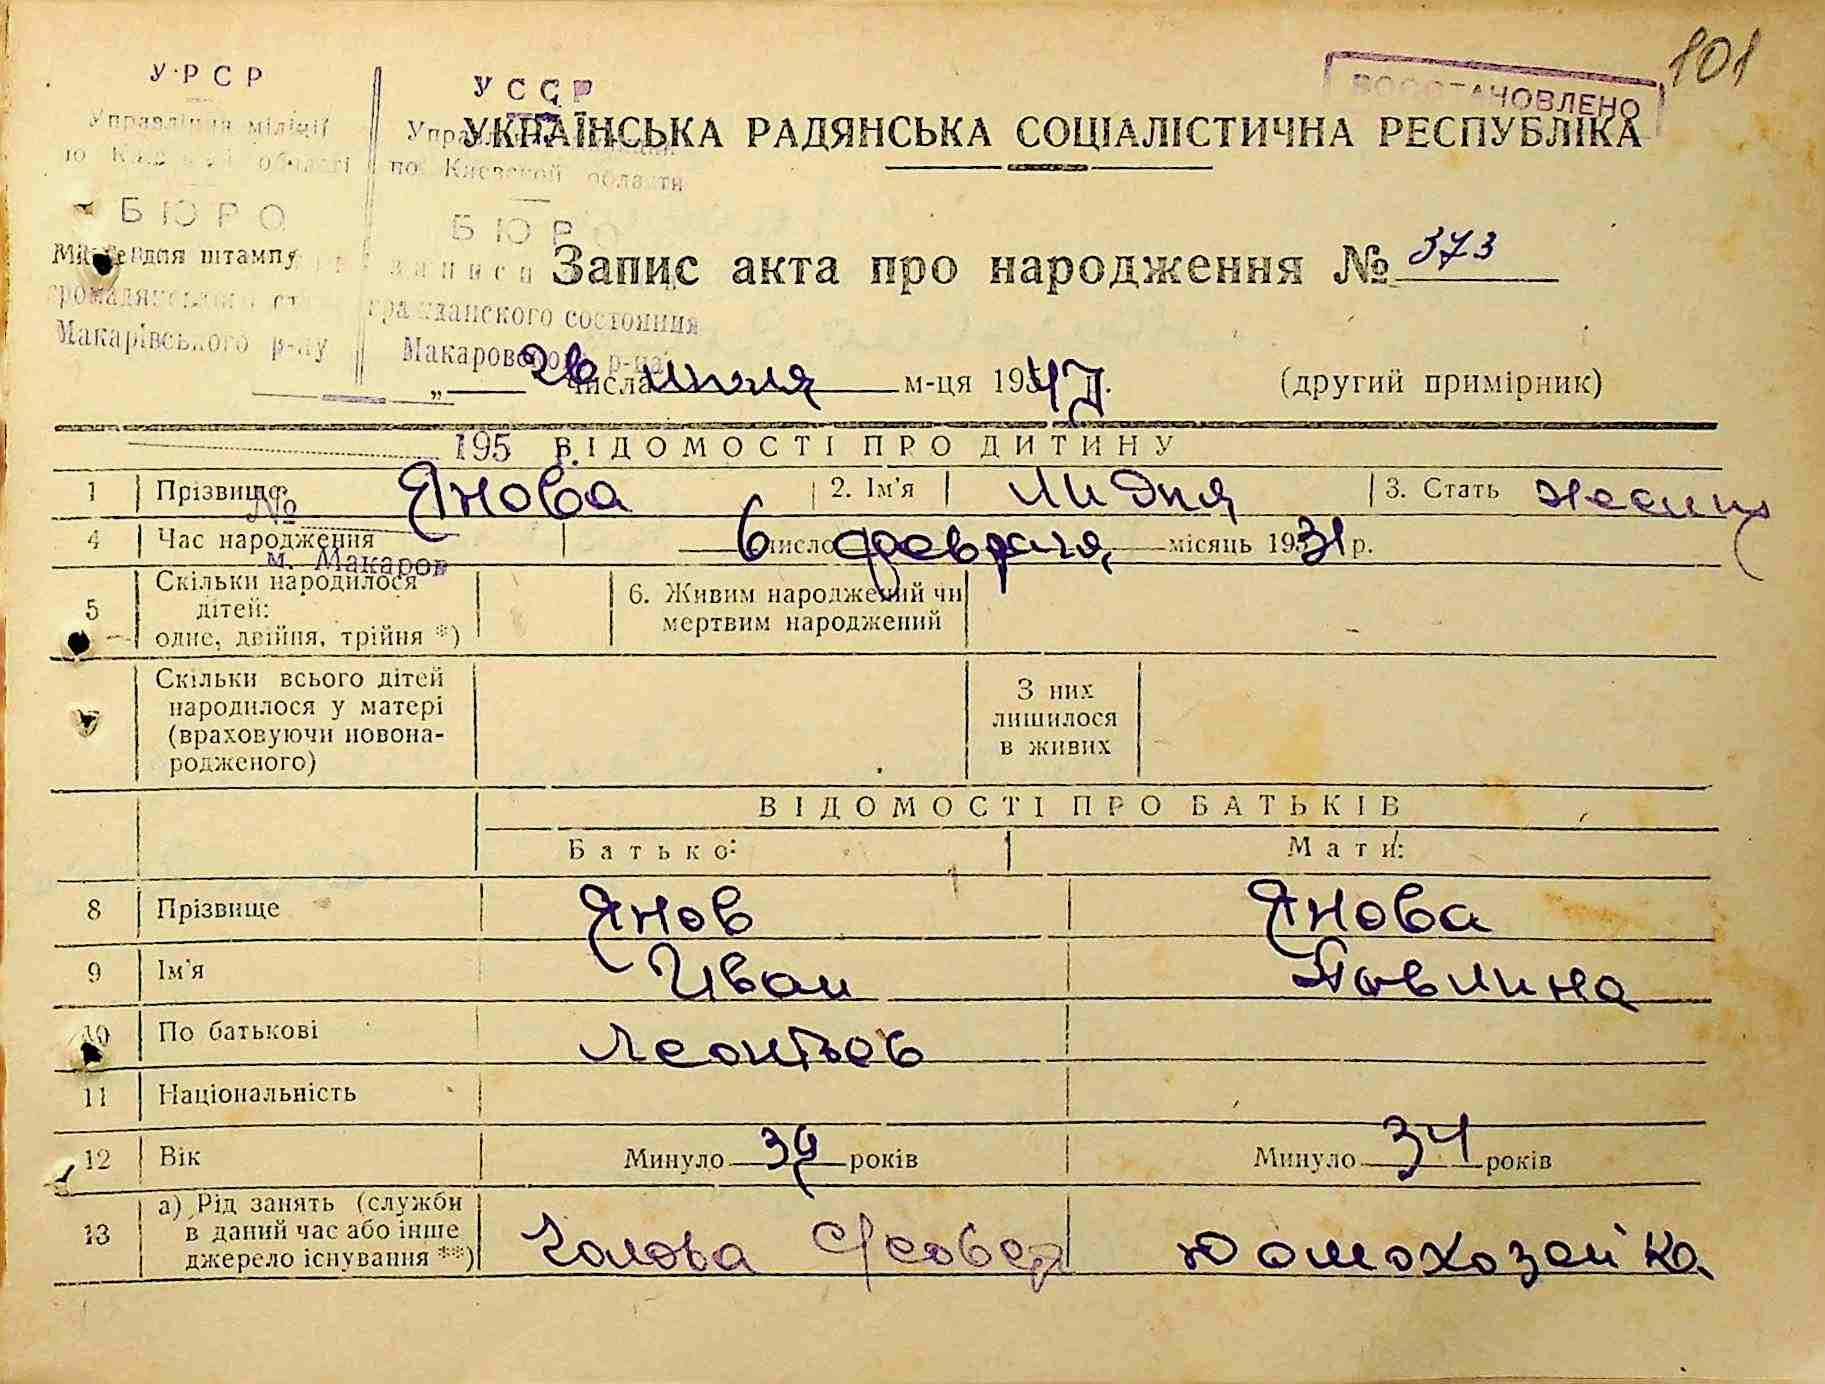 101
ВОССТАНОВЛЕНО
У Р С Р
У С С Р
Управління міліції
по Київській області
по Киевской области
УКРАЇНСЬКА РАДЯНСЬКА СОЦІАЛІСТИЧНА РЕСПУБЛІКА
БЮРО
БЮРО
Місце для штампу
записи
Запис акта про народження № 373
громадянського
гражданского состояния
Макарівського р-ну
Макаровского р-на
„ 26 числа июля м-ця 1947 р. (другий примірник)
195 р.
ВІДОМОСТІ ПРО ДИТИНУ
1 Прізвище Янова 2. Ім'я Лидия 3. Стать
№
4 Час народження 6 число февраля, місяць 1931 р.
м. Макаров
5 Скільки народилося дітей: одне, двійня, трійня *)
6. Живим народжений чи мертвим народжений
Скільки всього дітей народилося у матері (враховуючи новонародженого)
З них лишилося в живих
ВІДОМОСТІ ПРО БАТЬКІВ
Батько: Мати:
8 Прізвище Янов Янова
9 Ім'я Иван Павлина
10 По батькові Леонтьев
11 Національність
12 Вік Минуло 39 років Минуло 34 років
13 а) Рід занять (служби в даний час або інше джерело існування **) Голова домохозейка